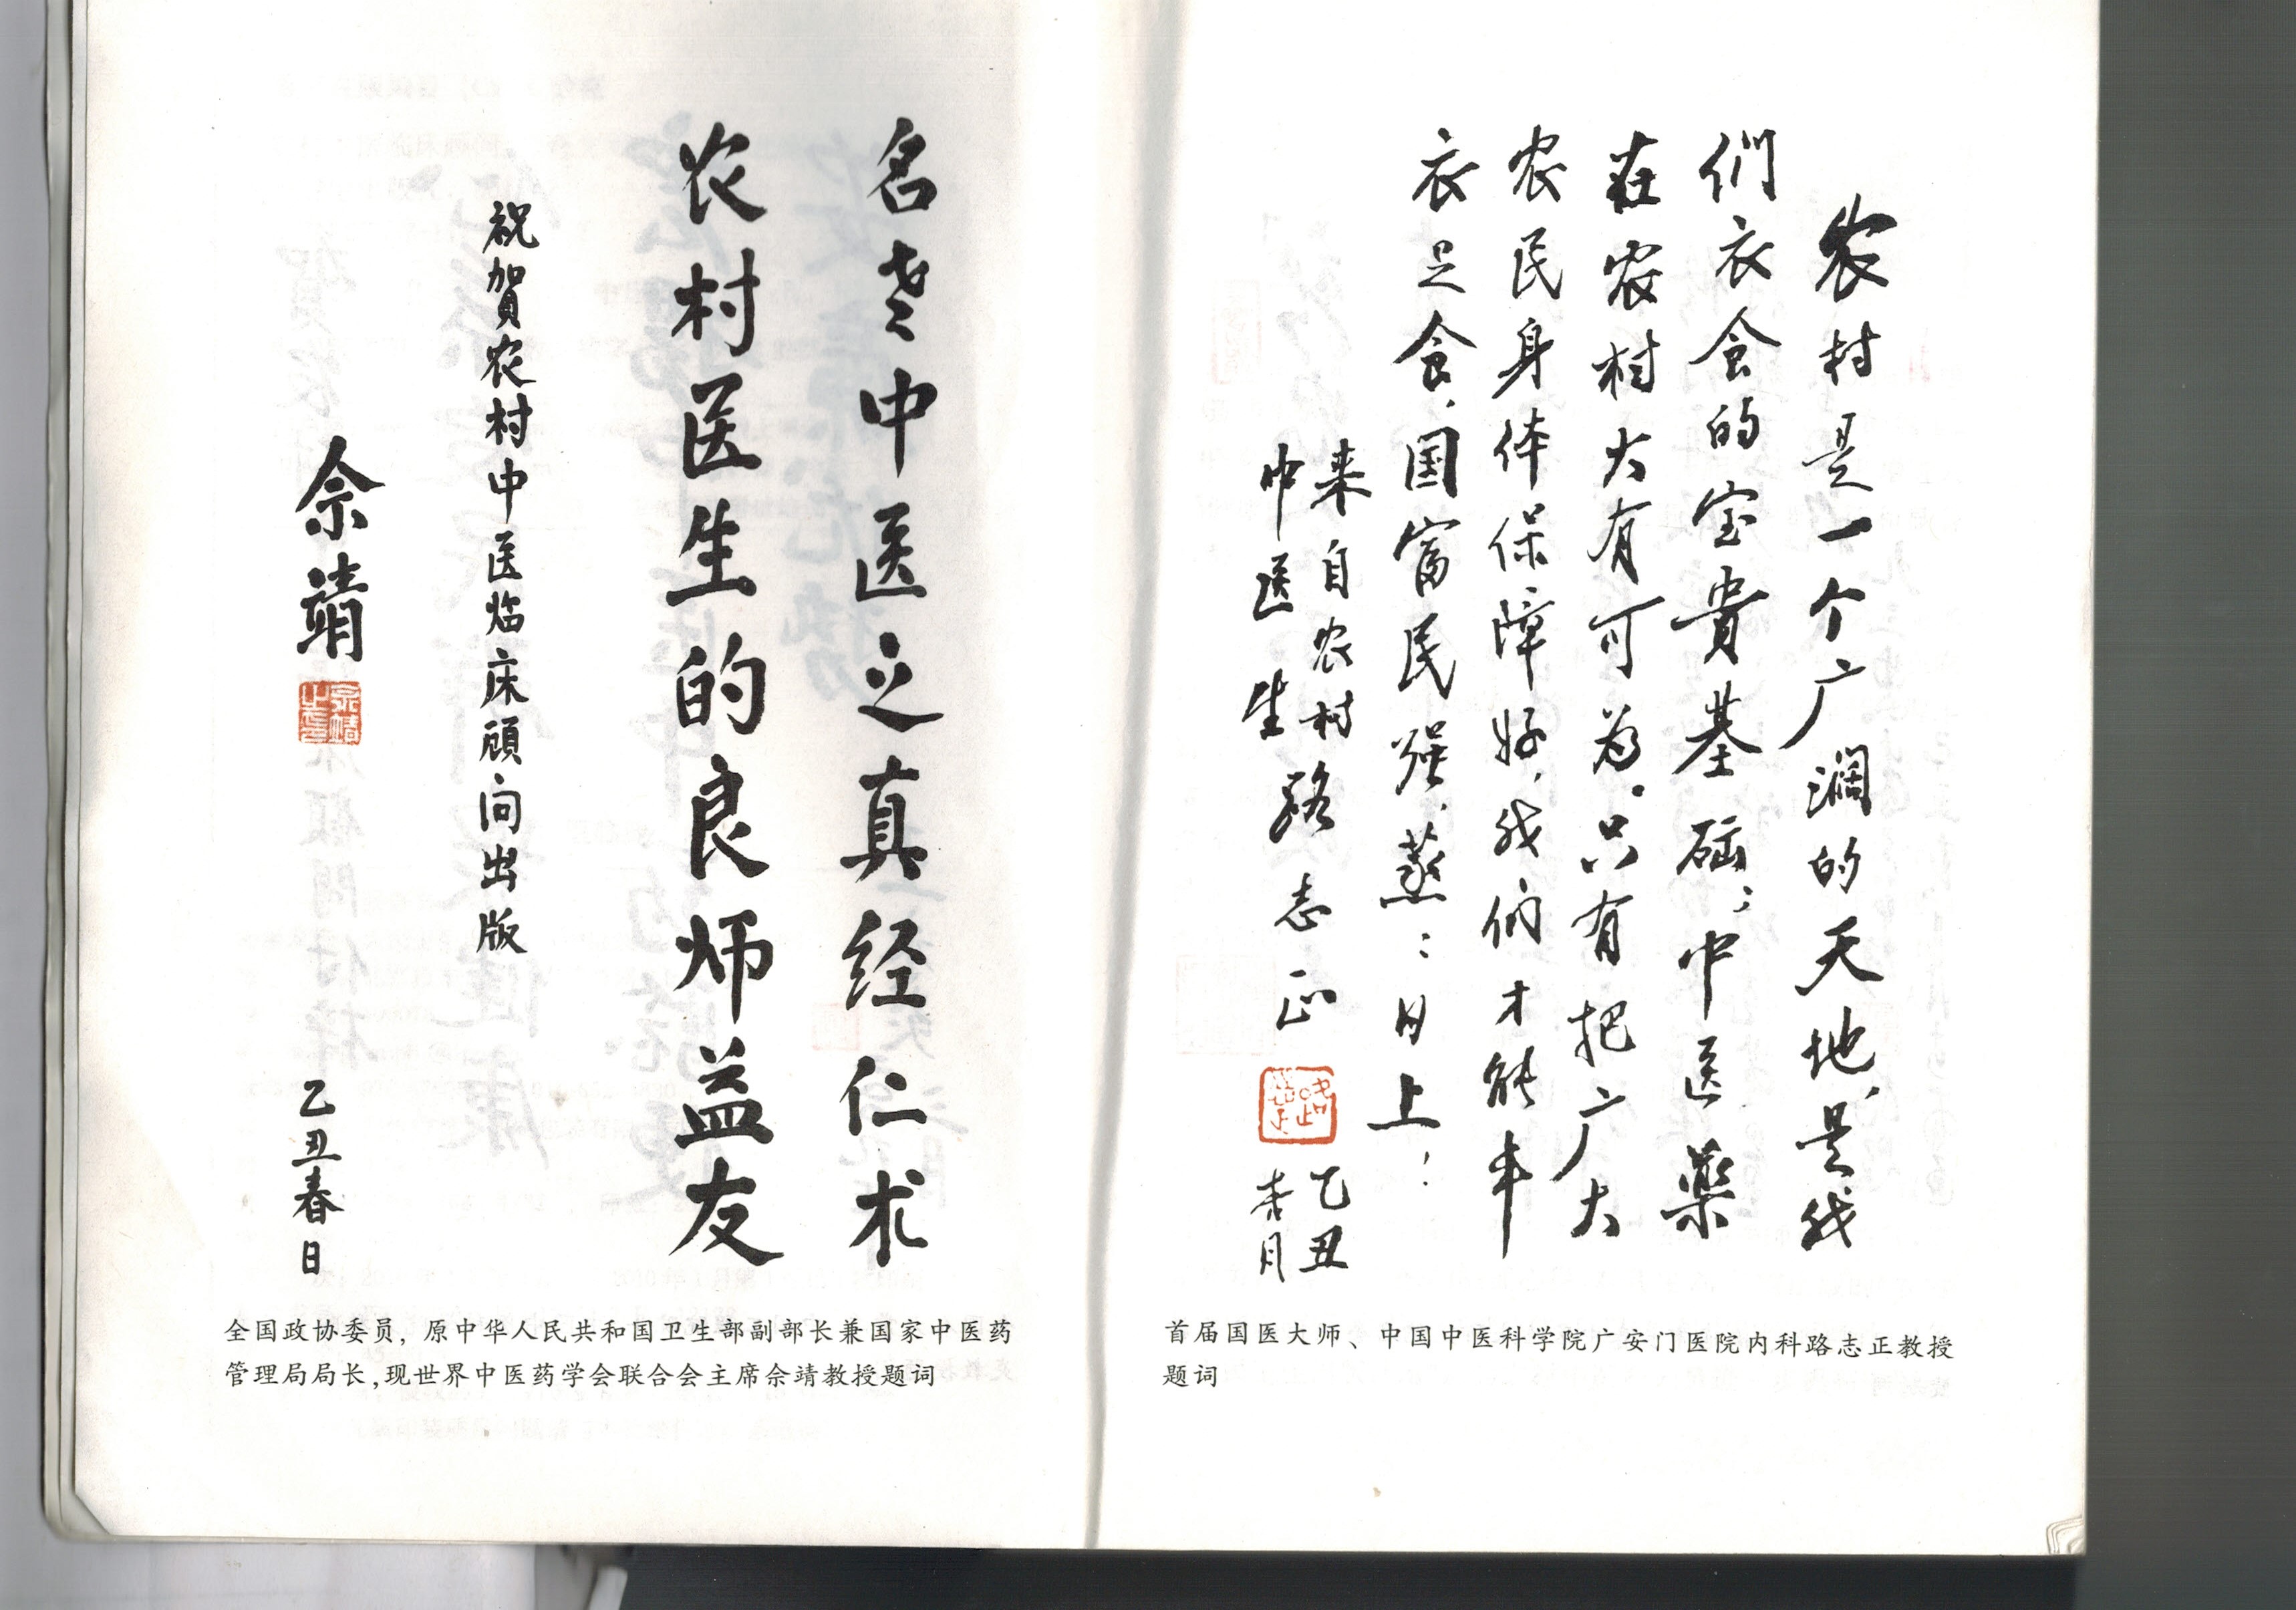 名老中医之真经仁术
农村医生的良师益友
祝賀农村中医临床顾问出版
佘靖
乙丑春日
全国政协委员，原中华人民共和国卫生部副部长兼国家中医药
管理局局长，现世界中医药学会联合会主席佘靖教授题词
农村是一个广濶的天地，是我
們衣食的宝貴基础；中医藥
在农村大有可为。只有把广大
农民身体保障好，我们才能丰
衣足食，国富民强，蒸：日上！
来自农村
中医生 路志正
乙丑
杏月
首届国医大师、中国中医科学院广安门医院内科路志正教授
题词